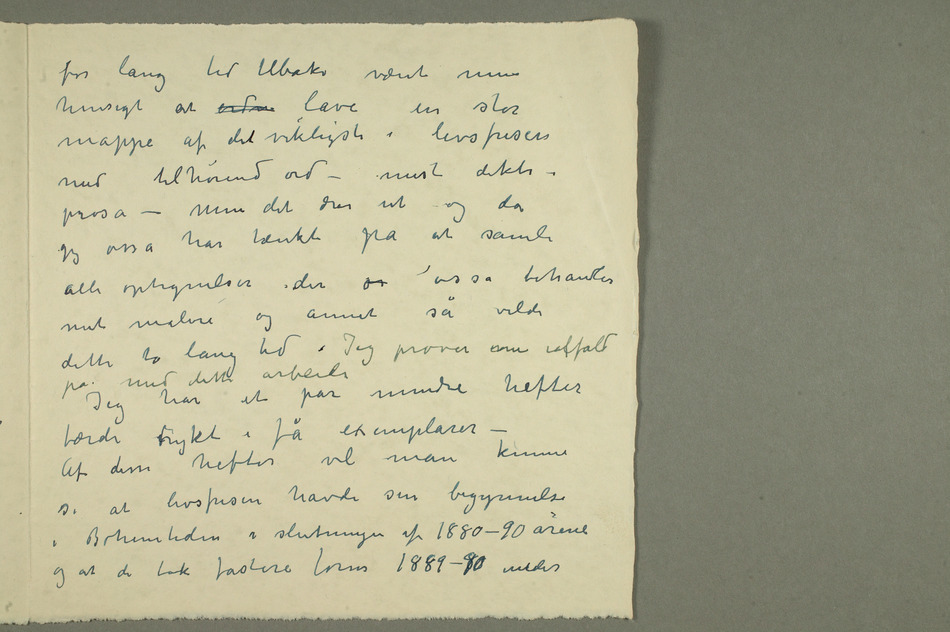 for lang tid tilbake vært min
hensigt at ordne lave en stor
mappe af det viktigste i livsfrisen
med tilhørend ord – mest dikte i
prosa – men det drer ut og da
jeg ossa har tænkt på at samle
alle optegnelser der ossa behandler
mit maleri og annet så vilde
dette ta lang tid. Jeg prøver ialfald
på med dette arbeide
Jeg har et par mindre hefter
færdi trykt i få exemplarer –
Af disse hefter vil man kunne
se at livsfrisen havde sin begynnelse
i Bohemtiden i slutningen af 1880–90 årene
og at de tok fastere form 1889–90 under